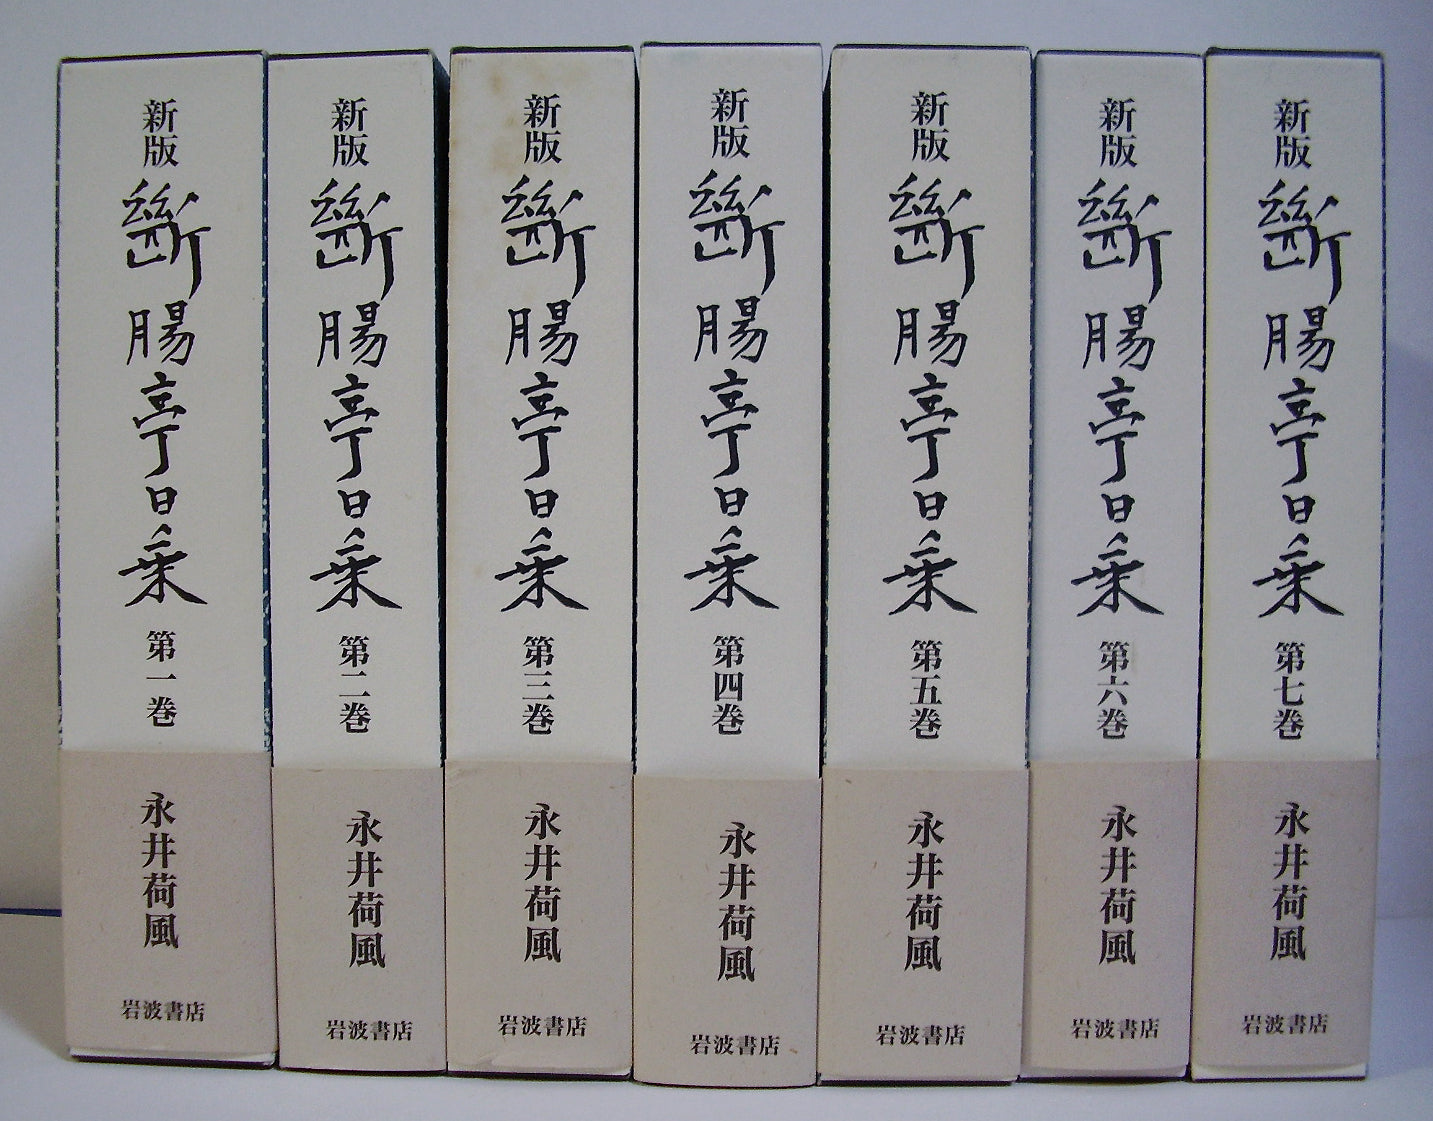 新版
斷腸亭日乗
第一巻
永井荷風
岩波書店
新版
斷腸亭日乗
第二巻
永井荷風
岩波書店
新版
斷腸亭日乗
第三巻
永井荷風
岩波書店
新版
斷腸亭日乗
第四巻
永井荷風
岩波書店
新版
斷腸亭日乗
第五巻
永井荷風
岩波書店
新版
斷腸亭日乗
第六巻
永井荷風
岩波書店
新版
斷腸亭日乗
第七巻
永井荷風
岩波書店